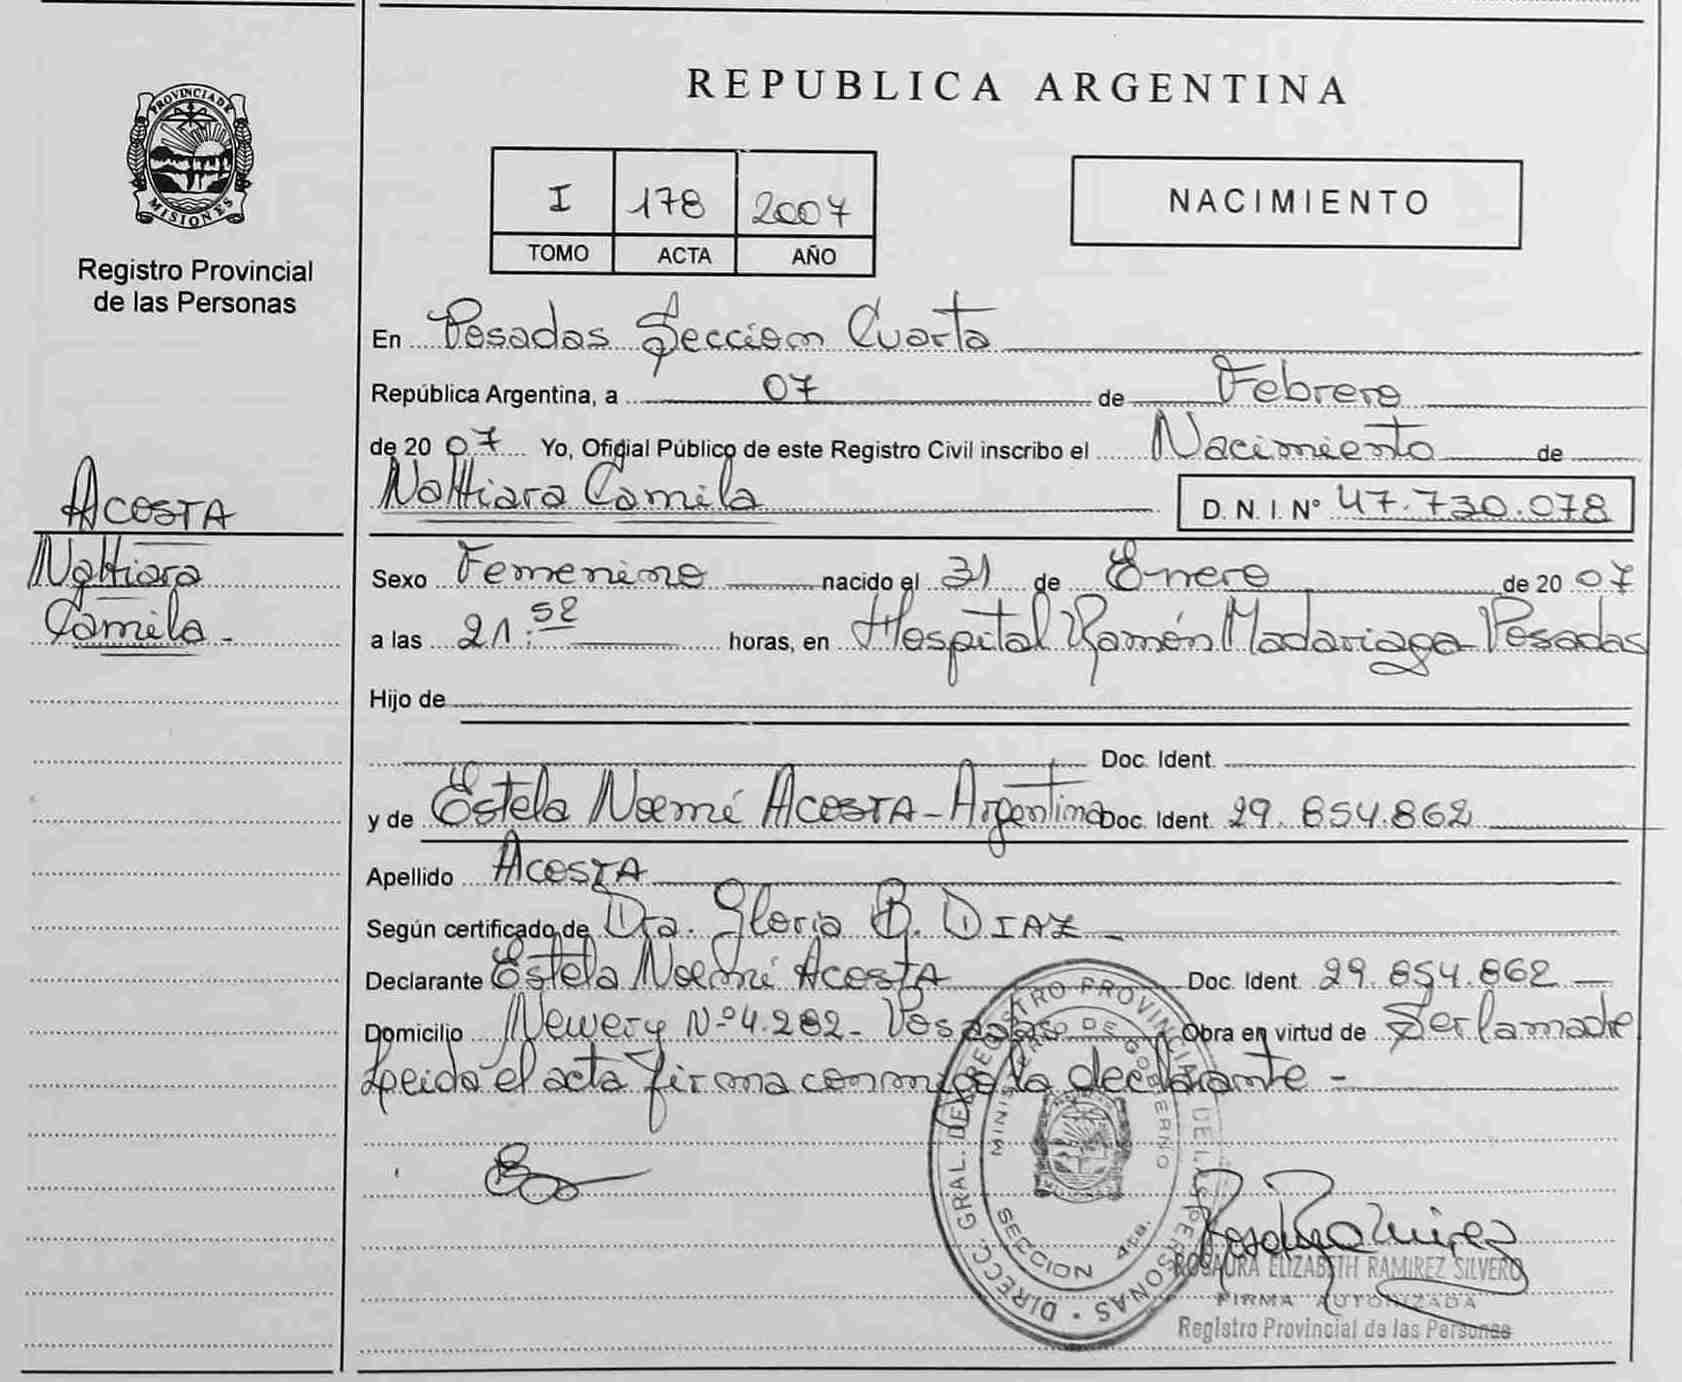 PROVINCIA DE
MISIONES
Registro Provincial
de las Personas
ACOSTA
Nattiara
Camila -
REPUBLICA ARGENTINA
I 178 2007
TOMO ACTA AÑO
NACIMIENTO
En Posadas Sección Cuarta
República Argentina, a 07 de Febrero
de 20 07 Yo, Oficial Público de este Registro Civil inscribo el Nacimiento de
Nattiara Camila
D. N. I. N° 47.730.078
Sexo Femenino nacido el 31 de Enero de 20 07
a las 21:52 horas, en Hospital Ramón Madariaga Posadas
Hijo de
Doc. Ident.
y de Estela Noemí ACOSTA - Argentina Doc. Ident. 29.854.862
Apellido ACOSTA
Según certificado de Dra. Gloria B. DIAZ -
Declarante Estela Noemí ACOSTA Doc. Ident. 29.854.862
Domicilio Newery N° 4.282 - Posadas Obra en virtud de Ser la madre
Leida el acta firma conmigo la declarante -
DIRECC. GRAL. DEL REGISTRO PROVINCIAL DE LAS PERSONAS
MINISTERIO DE GOBIERNO
SECCION 4ta.
ROSAURA ELIZABETH RAMIREZ SILVERO
FIRMA AUTORIZADA
Registro Provincial de las Personas